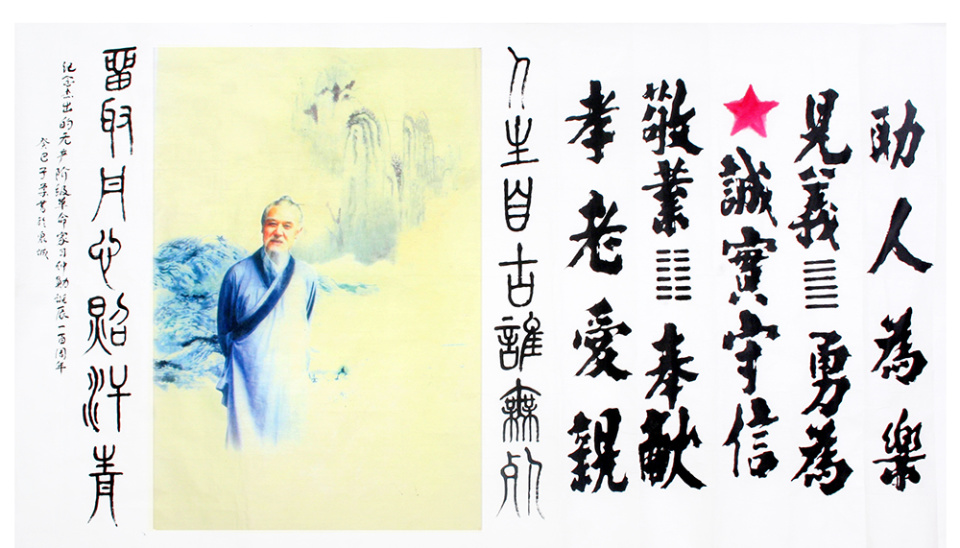 助人為樂
見義勇為
誠實守信
敬業奉献
孝老愛親
人生自古誰無死
留取丹心照汗青
纪念杰出的无产阶级革命家习仲勋誕辰一百周年
癸巳子